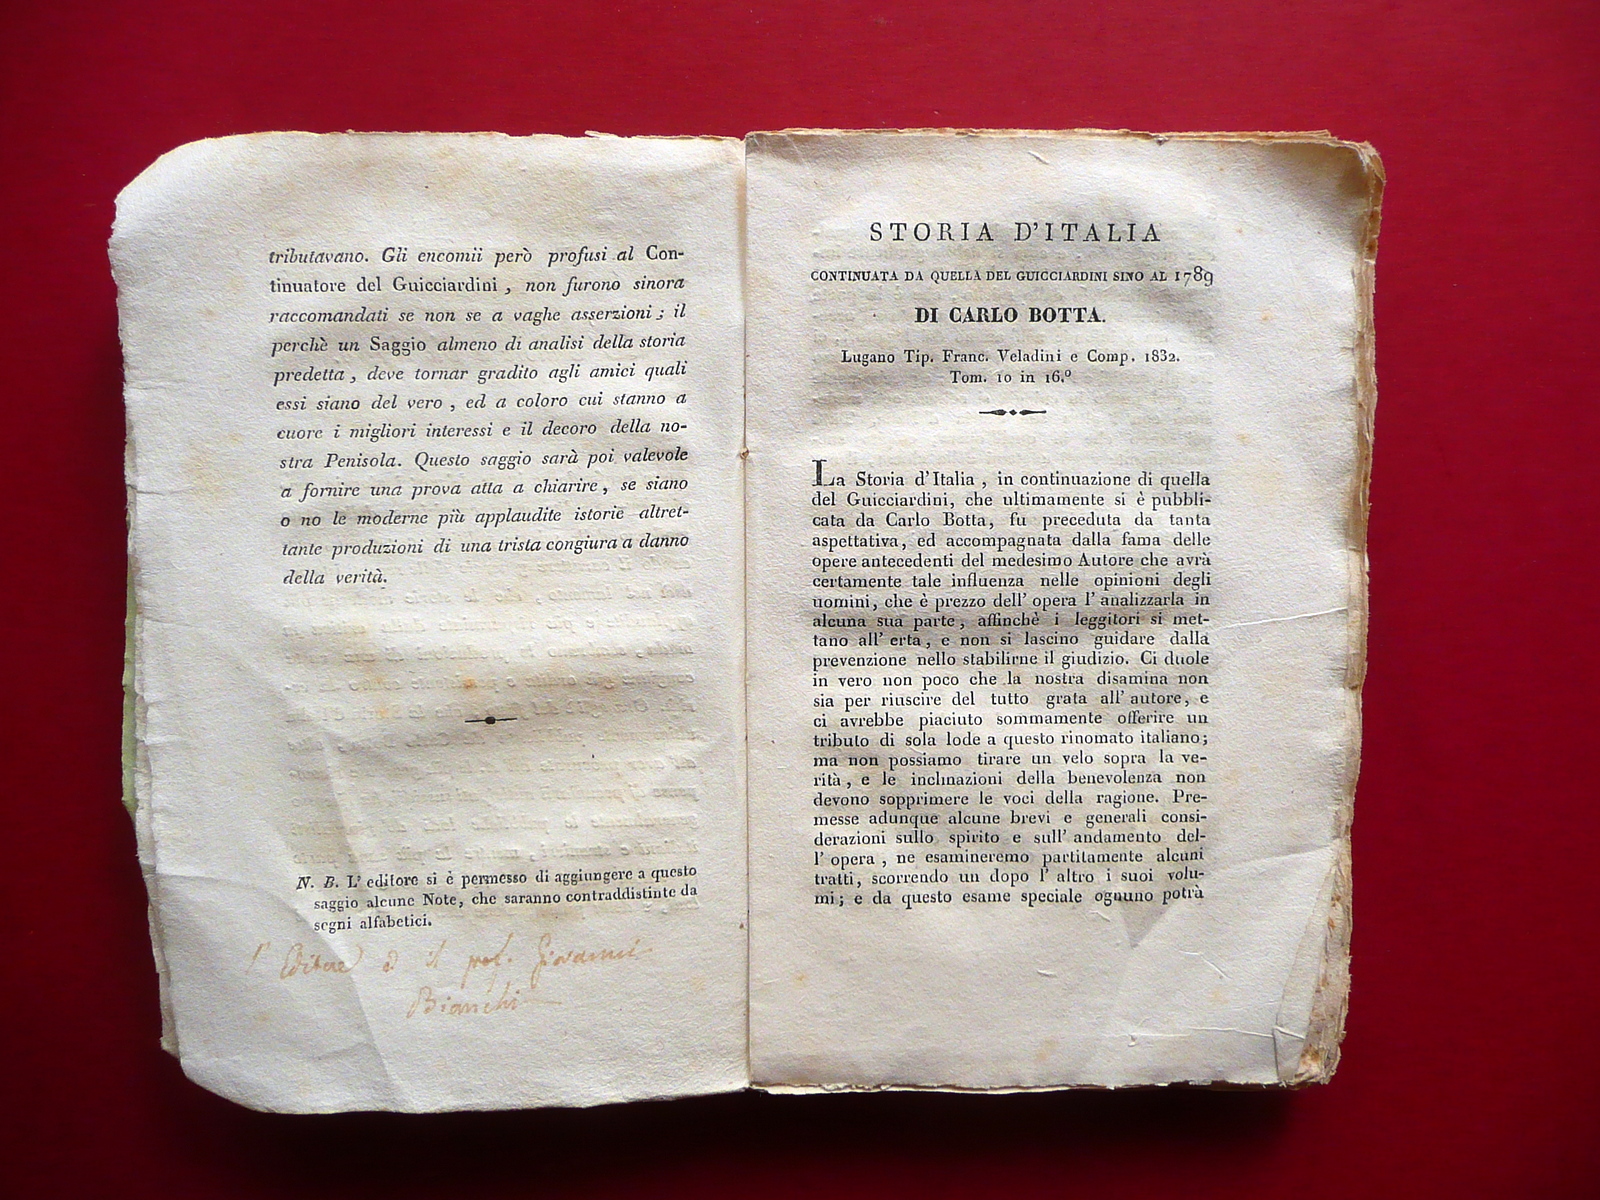 tributavano. Gli encomii però profusi al Con-
tinuatore del Guicciardini , non furono sinora
raccomandati se non se a vaghe asserzioni ; il
perchè un Saggio almeno di analisi della storia
predetta , deve tornar gradito agli amici quali
essi siano del vero , ed a coloro cui stanno a
cuore i migliori interessi e il decoro della no-
stra Penisola. Questo saggio sarà poi valevole
a fornire una prova atta a chiarire , se siano
o no le moderne più applaudite istorie altret-
tante produzioni di una trista congiura a danno
della verità.
N. B. L' editore si è permesso di aggiungere a questo
saggio alcune Note, che saranno contraddistinte da
segni alfabetici.
l' Editore è il prof. Giovanni
Bianchi
STORIA D'ITALIA
CONTINUATA DA QUELLA DEL GUICCIARDINI SINO AL 1789
DI CARLO BOTTA.
Lugano Tip. Franc. Veladini e Comp. 1832.
Tom. 10 in 16.º
La Storia d'Italia , in continuazione di quella
del Guicciardini, che ultimamente si è pubbli-
cata da Carlo Botta, fu preceduta da tanta
aspettativa, ed accompagnata dalla fama delle
opere antecedenti del medesimo Autore che avrà
certamente tale influenza nelle opinioni degli
uomini, che è prezzo dell' opera l' analizzarla in
alcuna sua parte , affinchè i leggitori si met-
tano all' erta, e non si lascino guidare dalla
prevenzione nello stabilirne il giudizio. Ci duole
in vero non poco che la nostra disamina non
sia per riuscire del tutto grata all' autore, e
ci avrebbe piaciuto sommamente offerire un
tributo di sola lode a questo rinomato italiano;
ma non possiamo tirare un velo sopra la ve-
rità , e le inclinazioni della benevolenza non
devono sopprimere le voci della ragione. Pre-
messe adunque alcune brevi e generali consi-
derazioni sullo spirito e sull' andamento del-
l' opera , ne esamineremo partitamente alcuni
tratti, scorrendo un dopo l' altro i suoi volu-
mi ; e da questo esame speciale ognuno potrà